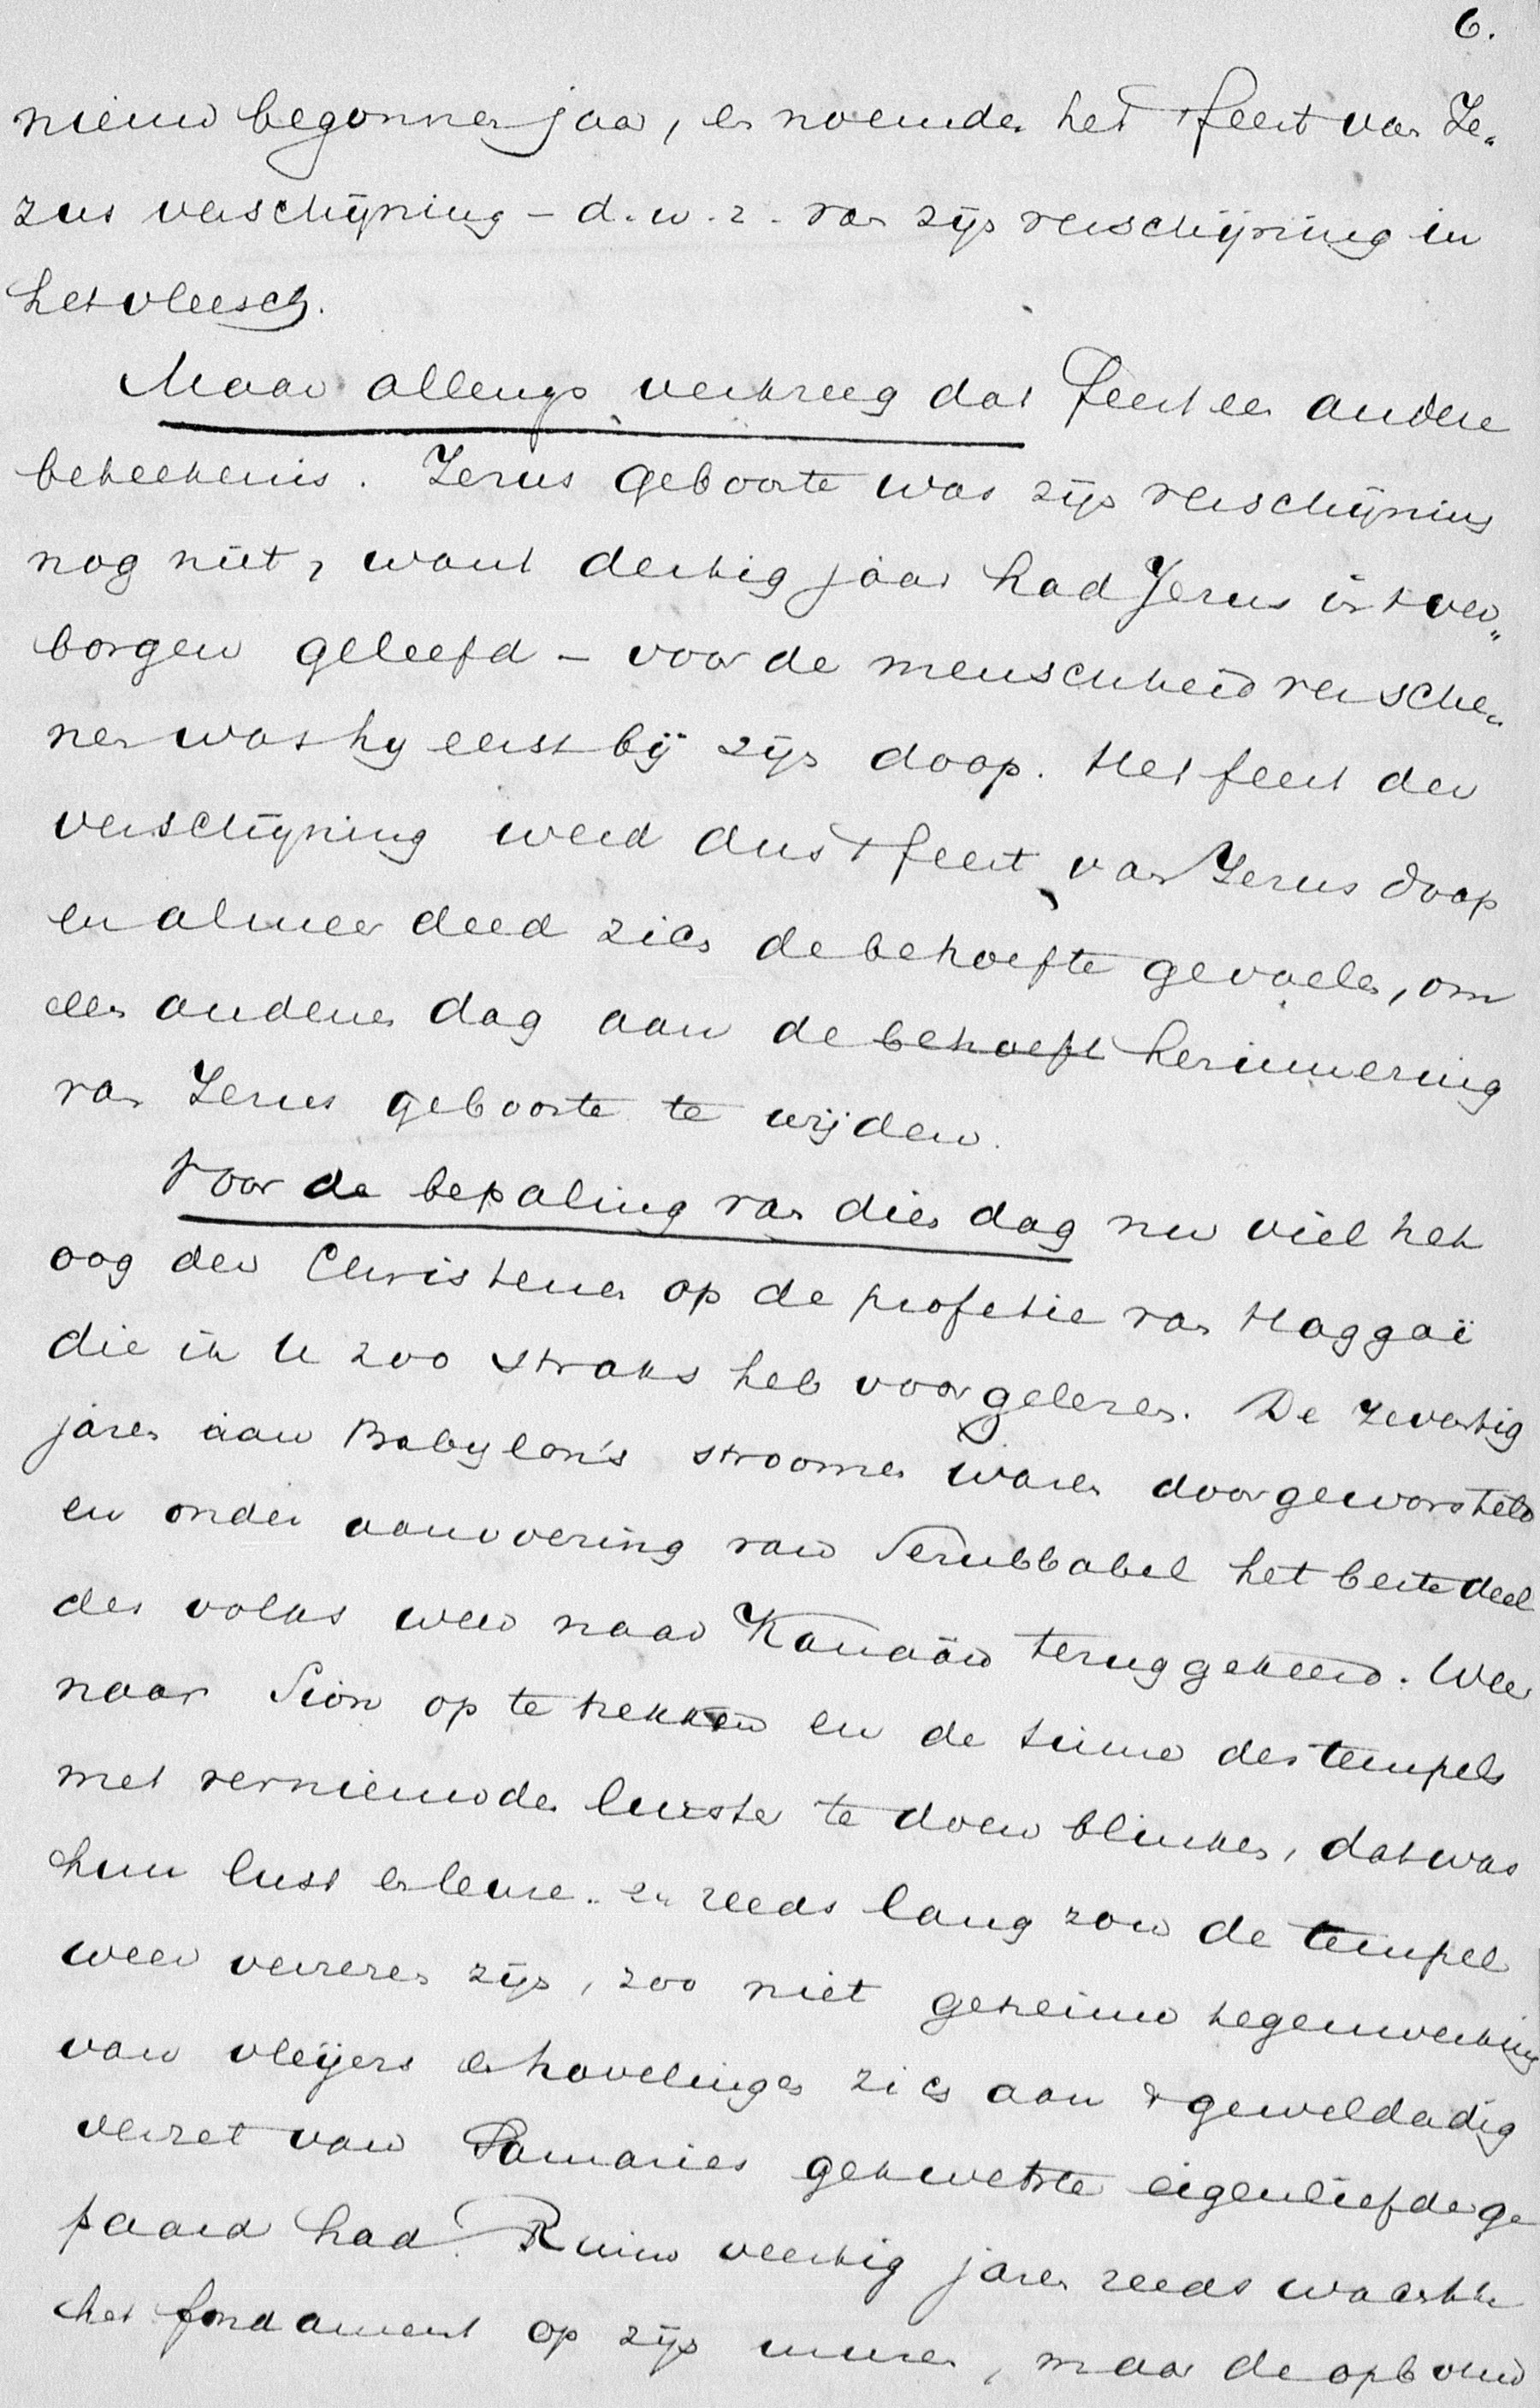 6.
nieuw begonnen jaar, en noemden het 't feest van Je„
zus verschijning – d.w.z. van zijn verschijning in
het vleesch.
Maar allengs verkreeg dat feest een andere
beteekenis. Jezus geboorte was zijn verschijning
nog niet, want dertig jaar had Jezus in 't ver„
borgen geleefd – voor de menschheid versche„
nen was hy eerst bij zijn doop. Het feest der
verschijning werd dus 't feest van Jezus doop
en almeer deed zich de behoefte gevoelen, om
een anderen dag aan de behoeft herinnering
van Jezus geboorte te wijden.
Voor de bepaling van dien dag nu viel het
oog der Christenen op de profetie van Haggaï
die ik U zoo straks heb voorgelezen. De zeventig
jaren aan Babylon's stroomen waren doorgeworsteld
en onder aanvoering van Serubbabel het beste deel
des volks weer naar Kanaän teruggekeerd. Weer
naar Sion op te trekken en de tinne des tempels
met vernieuwden luister te doen blinken, dat was
hun lust en leuze. En reeds lang zou de tempel
weer verrezen zijn, zoo niet geheime tegenwerking
van vleijers en hovelingen zich aan 't geweldadig
verzet van Samaries gekwetste eigenliefde ge
paard had. Ruim veertig jaren reeds wachtte
het fondament op zijn muren, maar de opbouw